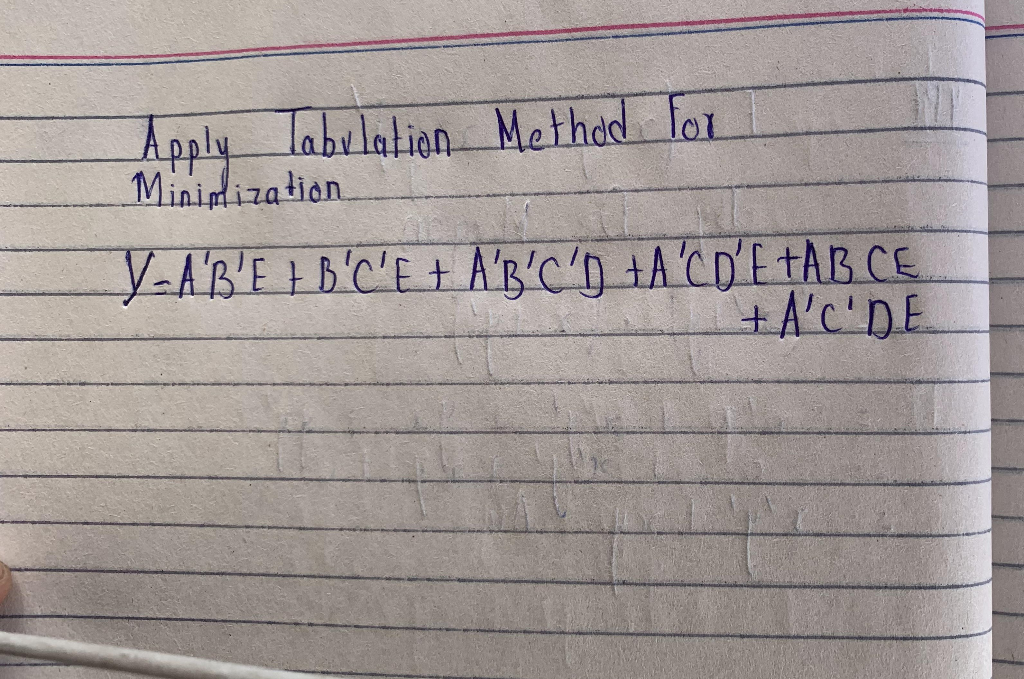 Apply Tabulation Method For
Minimization
Y=A'B'E + B'C'E + A'B'C'D +A'CD'E+ABCE
+ A'C'DE